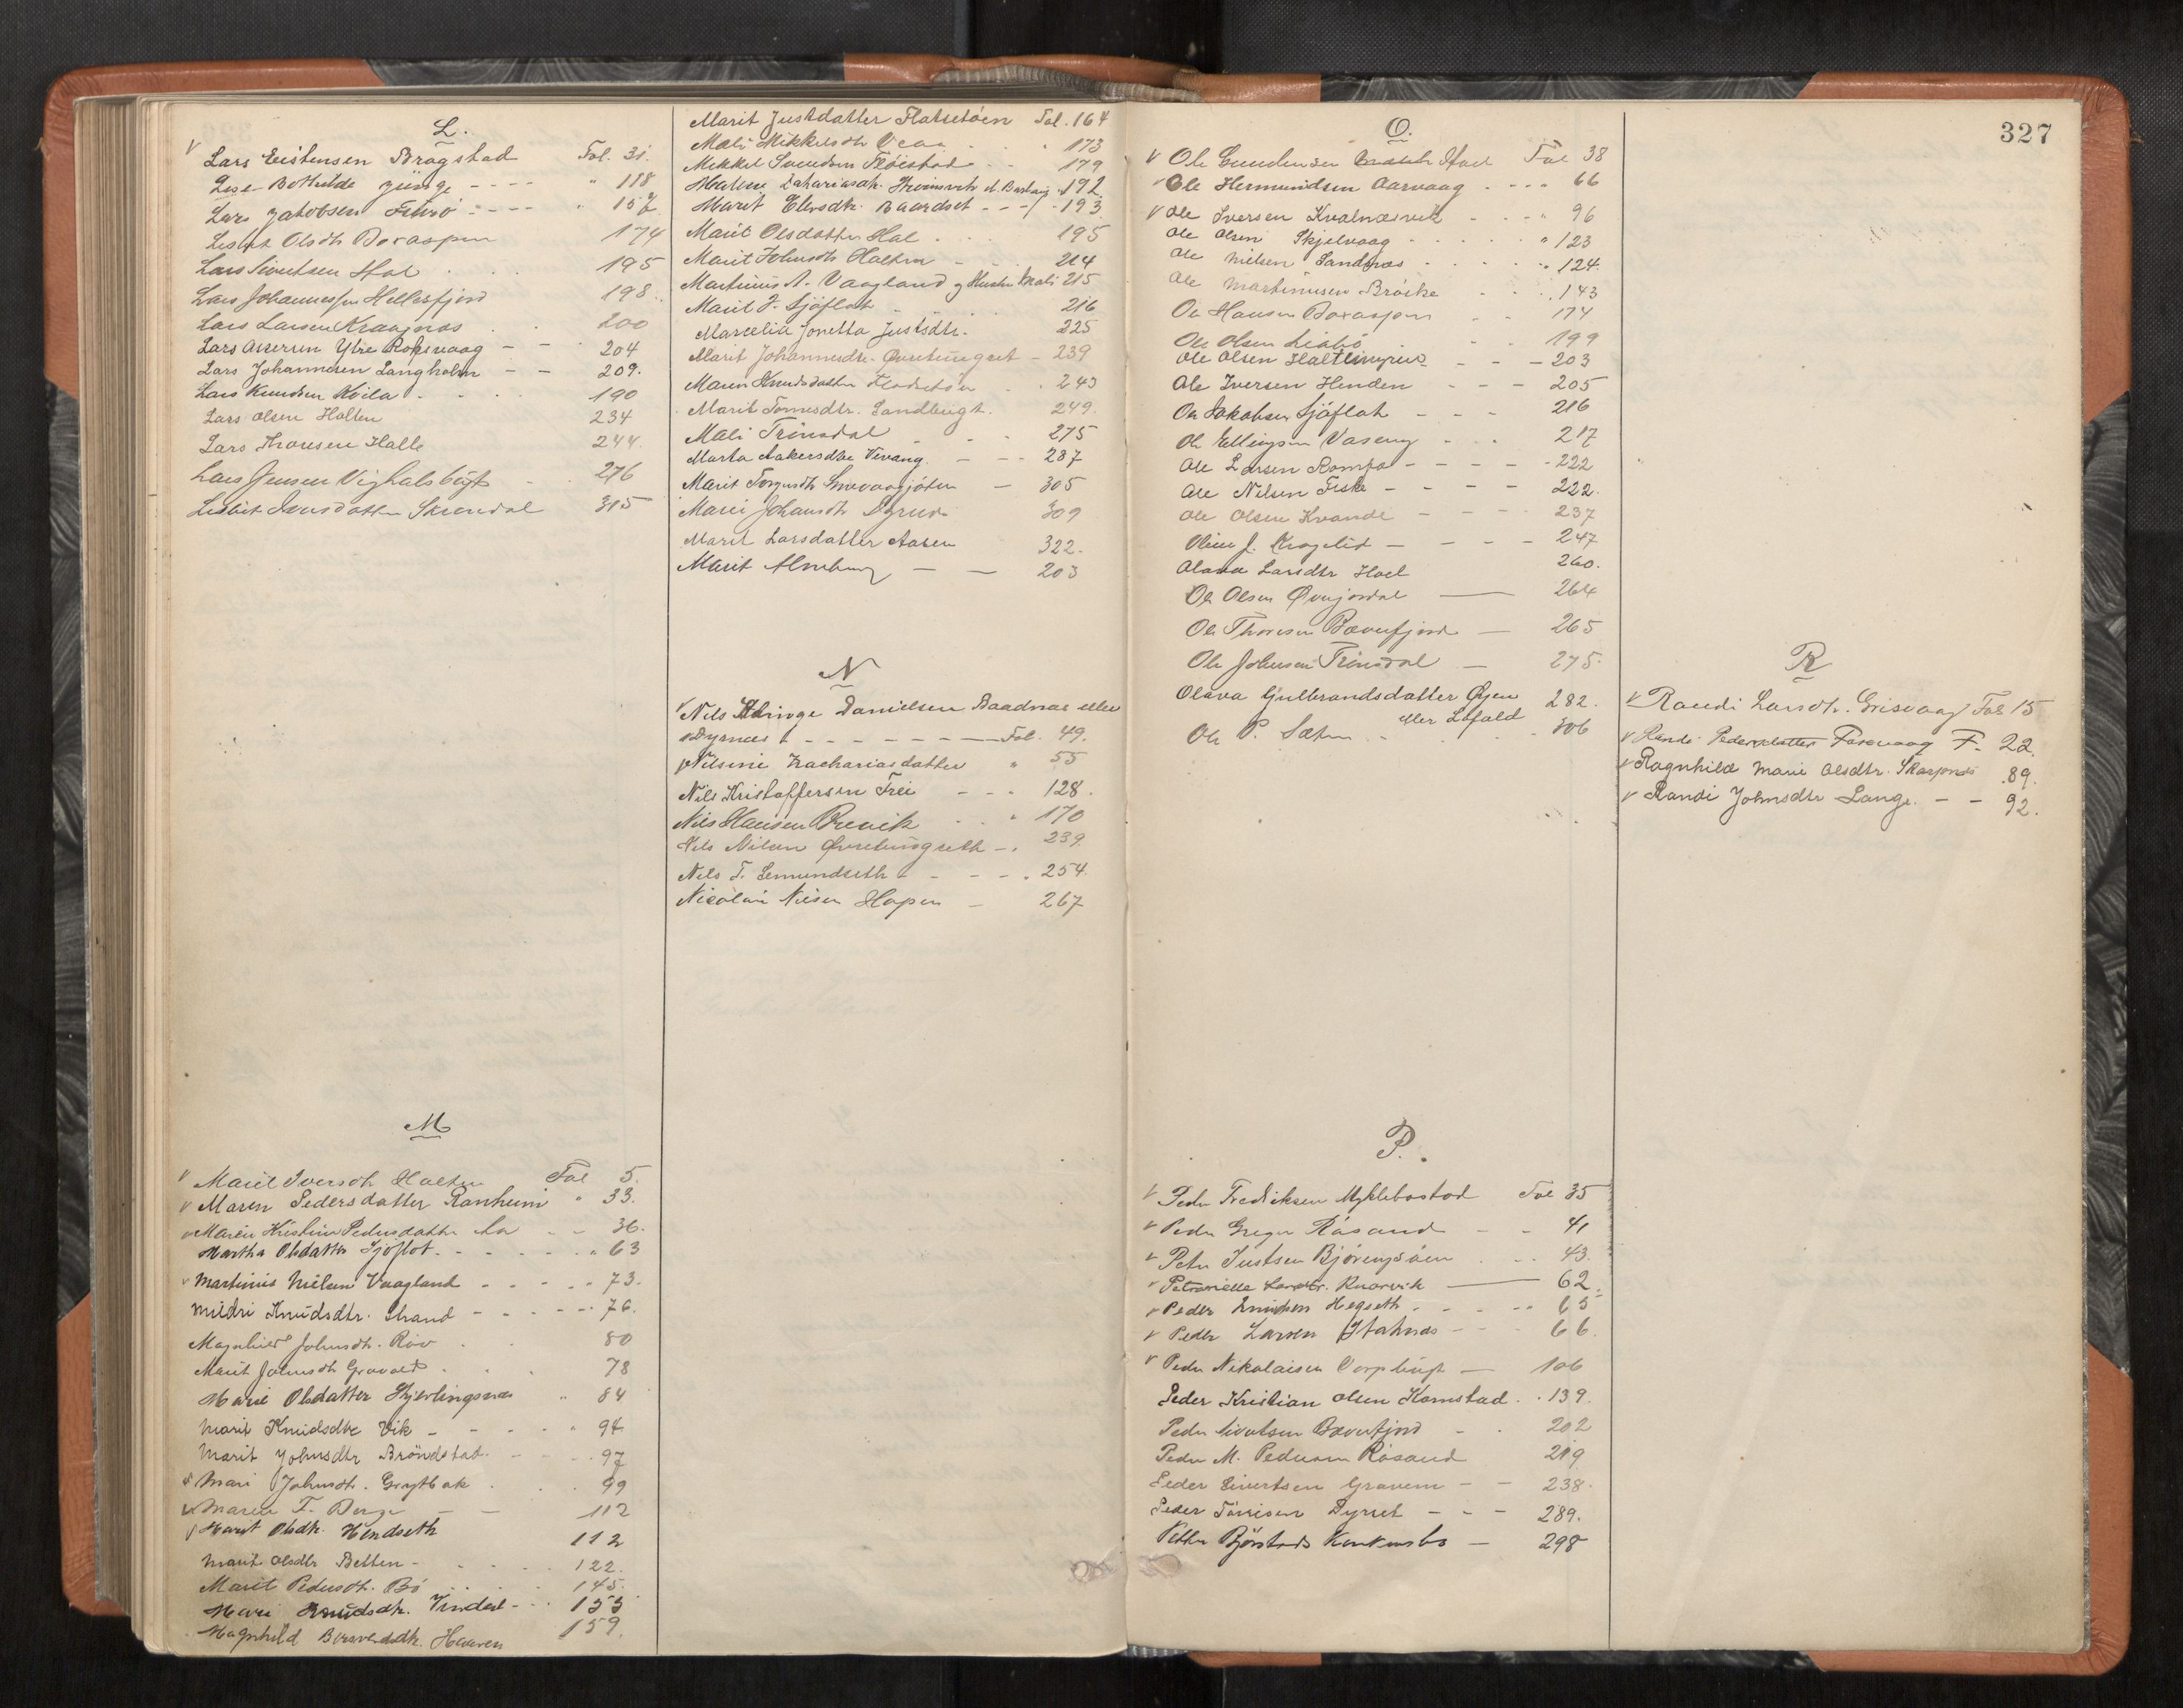 L.
Lars Eistensen Bragstad Fol. 31.
Lise Bothilde Jünge - - - - " 118
Lars Jakobsen Fürö - - - - " 157
Lisbet Olsdtr Boraspen 174
Lars Sivertsen Hol 195
Lars Johannessen Hellesfjord 198
Lars Larsen Kraagnæs 200
Lars Assersen Ytre Ropsvaag - - 204
Lars Johannesen Langholm - - 209.
Lars Knudsen Kvila 190
Lars Olsen Holten 234
Lars Thoresen Halle 244.
Lars Jensen Vighalsbugt 276
Lisbet Ivarsdatter Skrondal 315
M
Marit Iversdtr Halten Fol 5.
Maren Pedersdatter Ranheim " 33.
Maren Kristine Pedersdatter Aa - - 36.
Martha Olsdatter Sjöflot - - - - " 63
Martinus Nielsen Vaagland - - - - 73.
Mildri Knudsdtr. Strand - - - - 76.
Magnhild Johnsdtr. Röv 80
Marit Johnsdtr Gravolt 78
Marie Olsdatter Hjerlingsnæs " 84
Marit Knudsdtr Vik - - - - " 94
Marit Johnsdtr Bröndstad - - - 97
Mari Johnsdtr. Grytbak 99
Maren F. Berge - - 112
Marit Olsdtr. Hendseth 112
Marit Olsdtr Betten - 122.
Marit Pedersdtr. Bö 145.
Mari Knudsdtr. Vindal - - 155
Magnhild Baardsdtr. Haaven 159.
Marit Justdatter Flatsetöen Fol. 164
Mali Mikkelsdtr Veaa " 173
Mikkel Sivertsen Flöistad - - 179
Malene Zahariasdtr. 192
Marit Elersdtr. Baardset - - - 193
Marit Olsdatter Hal 195
Marit Johnsdtr Halten - - 214
Martinus A. Vaagland og Hustru Mali 215
Marit J. Sjöflot 216
Marcelia Jonetta Justsdtr. 225
Marit Johannesdtr. Øvrebugset - 239
Maren Knudsdatter Flatsetöen 243
Marit Tomesdtr. Sandbugt. 249.
Mali Trinsdal - - - 275
Marta Aakersdtr Vevang. - - - 287
Marit Torgersdtr - 305
Marie Johansdtr Dyrnes 309
Marit Larsdatter Aasen 322.
Marit Almberg - - 203
N
Nils Kloringe Danielsen Baadnæs eller
Dyrnæs - - - - - - - Fol. 49.
Nilsine Zachariasdatter " 55
Nils Kristoffersen Frei - - - 128.
Nils Hansen Brevik " 170
Nils Nilsen Øvrebugseth - . 239.
Nils T. Semundseth - - - - . 254.
Nicolai Nilsen Hopen - 267
O.
Ole Gundersen Hoel Fol 38
Ole Hermundsen Aarvaag - - - - 66
Ole Iversen Kvalnæsvik - - - " 96
Ole Olsen Skjelvaag - - - - " 123
Ole Nielsen Sandnæs - - - - " 124.
Ole Martinusen Bröske - - - 143
Ole Hansen Boraspen - - 174
Ole Olsen Liabö - - 199
Ole Olsen Haltlimyren - - - 203
Ole Iversen Henden - - - 205
Ole Jakobsen Sjöflot - - - 216
Ole Ellingsen Vaseng - - - 217
Ole Larsen Rompa - - - - - 222
Ole Nilsen Fiske - - - - 222.
Ole Olsen Kvande - - - - 237
Oline J. Krogelid - - - - 247
Olava Larsdtr Hoel 260.
Ole Olsen Øvrejordal - 264
Ole Thoresen Bæverfjord - 265
Ole Johnsen Trinsdal - 275.
Olava Gulbrandsdatter Øyen 282.
eller Löfald
Ole P. Sæter 306
P.
Peder Fredriksen Myklebostad Fol 35
Peder Greger Råsand - - 41
Peter Justsen Björingsöen . . . 43
Petronelle Larsdtr. Knarvik - 62.
Peder Knudsen Hegseth - - - - - 65
Peder Larsen Stahnæs - - - 66.
Peder Nikolaisen Vorpbugt - 106
Peder Kristian Olsen Komstad . . 139.
Peder Sivertsen Bæverfjord - . 202
Peder M. Pedersen Råsand 219
Peder Sivertsen Gravem - - 238.
Peder Tönesen Dyrset - - - 289.
Petter Björstads Konkursbo - 298
327
R
Randi Larsdtr. Grisvaag Fol 15
Randi Pedersdatter Farevaag F. 22.
Ragnhild Marie Olsdtr. 89.
Randi Johnsdtr Lange. - - 92.